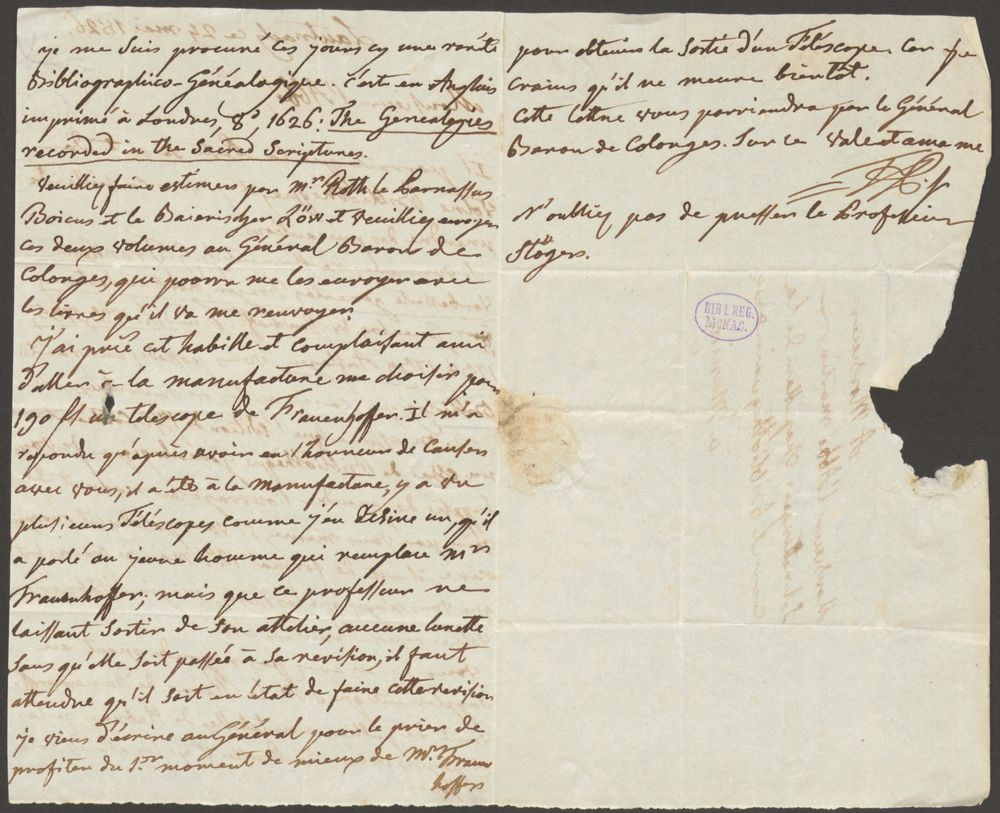 je me suis procuré ces jours cy une rareté
Bibliographico-Généalogique. C'est en Anglais
imprimé à Londres, 8º, 1626. The Genealogies
recorded in the Sacred Scriptures.
Veuilliez faire estimer par Mr Roth le Parnassus
Boicus et le Baierischer Löw et veuilliez envoyer
ces deux volumes au Général Baron de
Colonges, qui pourra me les envoyer avec
les livres qu'il va me renvoyer.
J'ai prié cet habille et complaisant ami
d'aller à la manufacture me choisir pour
190 fl un telescope de Frauenhoffer. Il m'a
repondu qu'après avoir eu l'honneur de causer
avec vous, il a été à la manufacture, y a vu
plusieurs Téléscopes comme j'en desire un, qu'il
a parlé au jeune homme qui remplace Mr
Frauenhoffer; mais que ce professeur ne
laissant sortir de son attelier, aucune lunette
sans qu'elle soit passée à sa revision, il faut
attendre qu'il soit en état de faire cette revision
je viens d'écrire au Général pour le prier de
profiter du 1er moment de mieux de Mr Frauen
hoffer
pour obtenir la sortie d'un Téléscope. Car je
crains qu'il ne meure bientôt.
Cette lettre vous parviendra par le Général
Baron de Colonges. Sur ce Vale et ama me
N'oubliez pas de presser le Professeur
Stögers.
BIBL. REG.
MONAC.